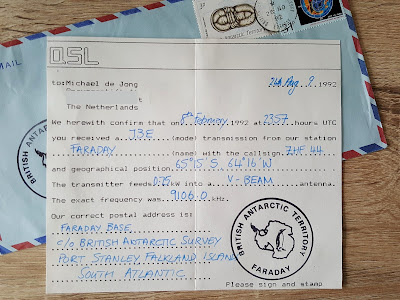 QSL
to: Michael de Jong
The Netherlands
2nd Aug 9. 1992
We herewith confirm that on 8th February 1992 at 2357 hours UTC
you received a J3E (mode) transmission from our station
FARADAY (name) with the callsign ZHF 44
and geographical position 65°15'S 64°16'W
The transmitter feeds 0.75 kW into a V-BEAM antenna.
The exact frequency was 9106.0 kHz.
Our correct postal address is:
FARADAY BASE
c/o BRITISH ANTARCTIC SURVEY
PORT STANLEY, FALKLAND ISLAND
SOUTH ATLANTIC
Please sign and stamp
BRITISH ANTARCTIC TERRITORY
FARADAY
MAIL
BRITISH ANTARCTIC